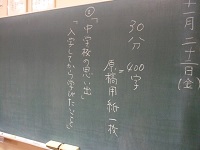 十一月二十一日(金)
30分 400字
=
原稿用紙一枚
①「中学校の思い出」
「入学してから学んだこと」